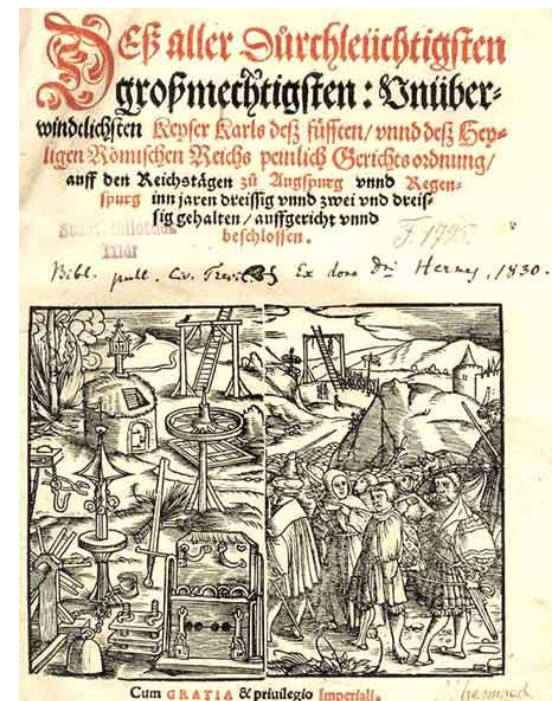 Deß aller Durchleüchtigsten
großmechtigsten: Vnüber-
windtlichsten Keyser Karls deß fünfften/ vnnd deß Hey-
ligen Römischen Reichs peinlich Gerichts ordnung/
auff den Reichstägen zů Augspurg vnnd Regen-
spurg inn jaren dreissig vnnd zwei vnd dreis-
sig gehalten/ auffgericht vnnd
beschlossen.
Bibl. publ. Civ. Ex dono Dni Hermes, 1830.
Cum GRATIA & priuilegio Imperiali.